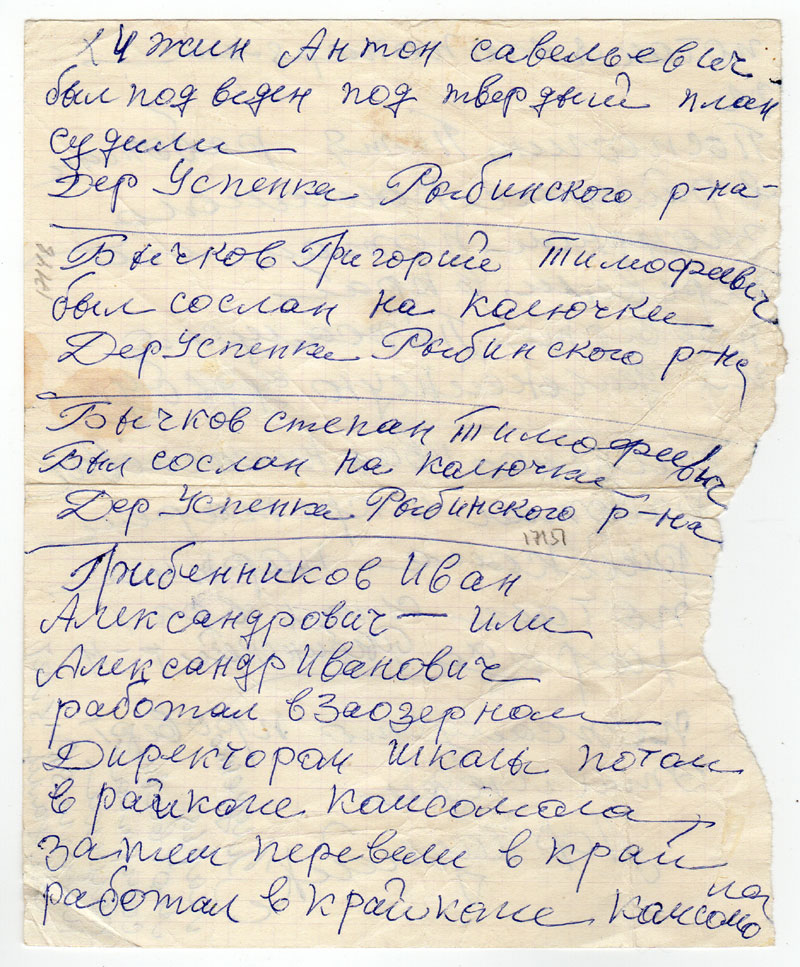 Чжин Антон савельевич
был подведен под твердый план
судили
Дер Успенка Рыбинского р-на-
Бычков Григорий Тимофеевич
был сослан на калючки
Дер Успенка Рыбинского р-на
Бычков степан Тимофеевич
Был сослан на калючки
Дер Успенка Рыбинского р-на
Гребенников Иван
Александрович — или
Александр Иванович
работал в Заозерном
Директором школы потом
в райкоме комсомола
затем перевели в край
работал в крайкоме комсомо